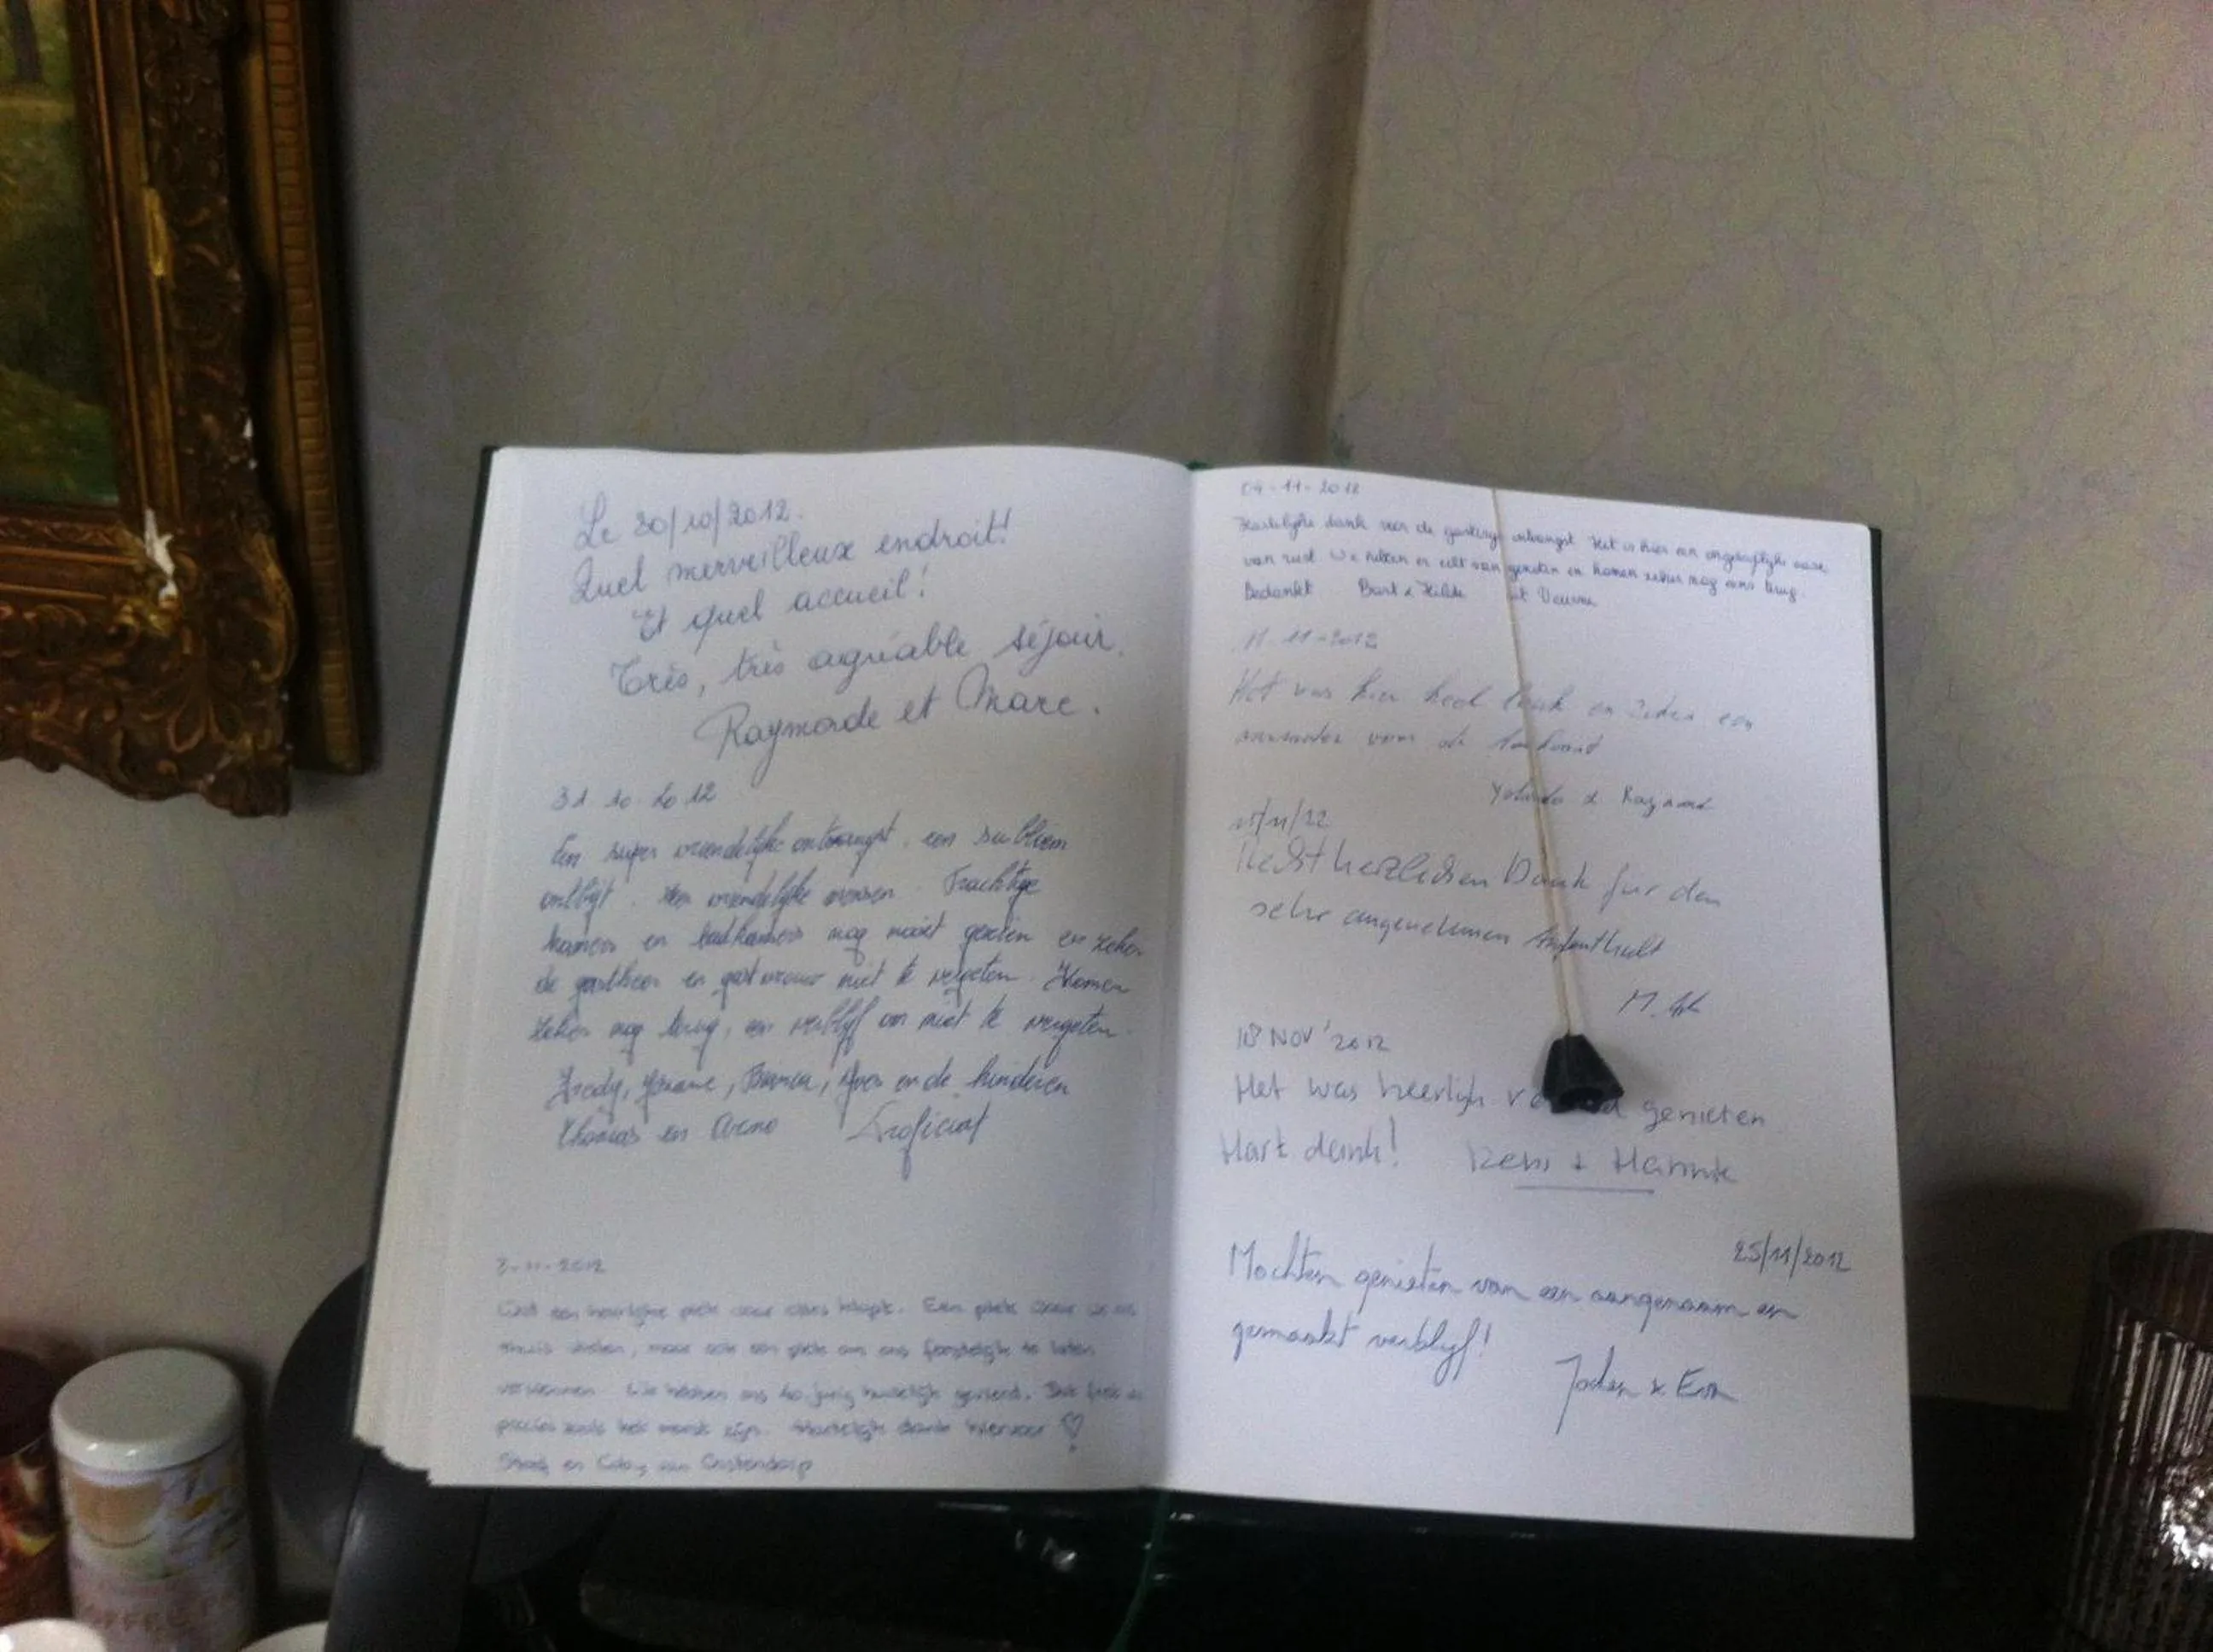 Le 30/10/2012.
Quel merveilleux endroit!
Et quel accueil!
Très, très agréable séjour.
Raymonde et Marc.
31 10 2012
Een super vriendelijke ontvangst, een subliem
ontbijt. vriendelijke mensen. Prachtige
kamers en badkamers nog nooit gezien en zeker
de gastheer en gastvrouw niet te vergeten. Komen
zeker nog terug, een verblijf om niet te vergeten.
Fredy, Bianca, Yves en de kinderen
Thomas en Arno Proficiat
3-11-2012
een heerlijke plek waar alles klopt. Een plek waar je
thuis, maar ook een plek om ons feestelijk te laten
verwennen. We hebben ons 40 jarig huwelijk gevierd.
precies zoals het moest zijn. Hartelijk dank hiervoor
en van Oostendorp
04-11-2012
Hartelijke dank voor de gastvrije ontvangst. Het is hier een ongelooflijke oase
van rust. We hebben er echt van genoten en komen zeker nog eens terug.
Bedankt Bart & Hilde uit Veurne
11-11-2012
Het was hier heel leuk en zeker een
voor de
Yolanda & Raymond
15/11/22
Herzlichen Dank für den
sehr angenehmen Aufenthalt
M.
18 NOV '2012
Het was heerlijk genieten
Hart dank! + Hannie
25/11/2012
Mochten genieten van een aangenaam en
gesmaakt verblijf!
Jochen & Eva